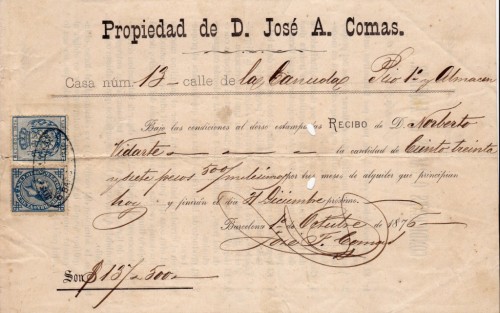 Propiedad de D. José A. Comas.
Casa núm. 13 calle de la Canuda Piso 1º y Almacen
Bajo las condiciones al dorso estampadas RECIBO de D. Norberto
Vidarte la cantidad de Ciento treinta
y siete pesos 500/milesimos por tres meses de alquiler que principian
hoy y finirán el dia 31 Diciembre próximo.
Barcelona 1º de Octubre de 1876
José T. Comas
Son $ 137 500